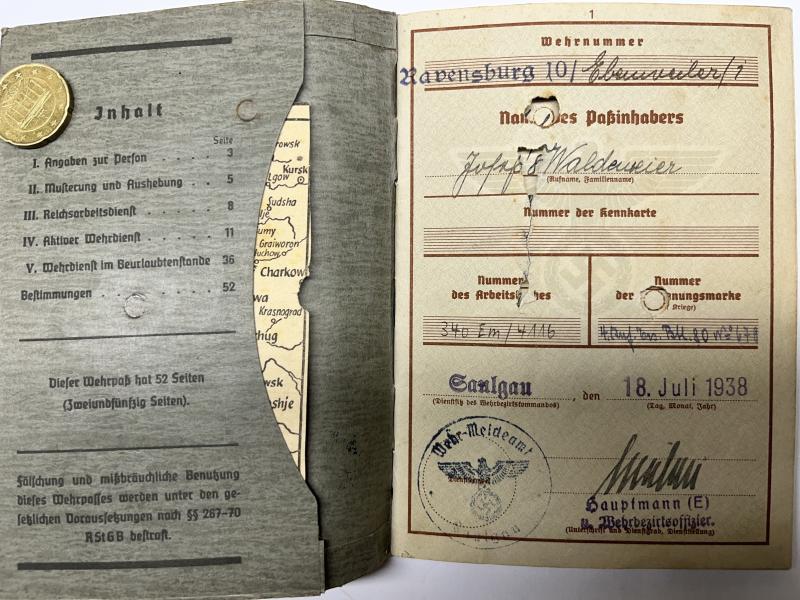 Inhalt
Seite
I. Angaben zur Person . . . . . . 3
II. Musterung und Aushebung . . . 5
III. Reichsarbeitsdienst . . . . . 8
IV. Aktiver Wehrdienst . . . . . 11
V. Wehrdienst im Beurlaubtenstande 36
Bestimmungen . . . . . . . 52
Dieser Wehrpaß hat 52 Seiten
(Zweiundfünfzig Seiten).
Fälschung und mißbräuchliche Benutzung
dieses Wehrpasses werden unter den ge-
setzlichen Voraussetzungen nach §§ 267-70
RStGB bestraft.
rowsk
Kursk
Lgow
Sudsha
Graiworon
Charkow
Krasnograd
1
Wehrnummer
Ravensburg 10/ Ebenweiler/1
des Paßinhabers
(Rufname, Familienname)
Nummer der Kennkarte
Nummer
des
Nummer
der
Kriege)
340 Em/4116
Saulgau, den 18. Juli 1938
(Dienstsitz des Wehrbezirkskommandos) (Tag, Monat, Jahr)
Wehr-Meldeamt
Hauptmann (E)
u. Wehrbezirksoffizier.
(Unterschrift und Dienstgrad, Dienststellung)